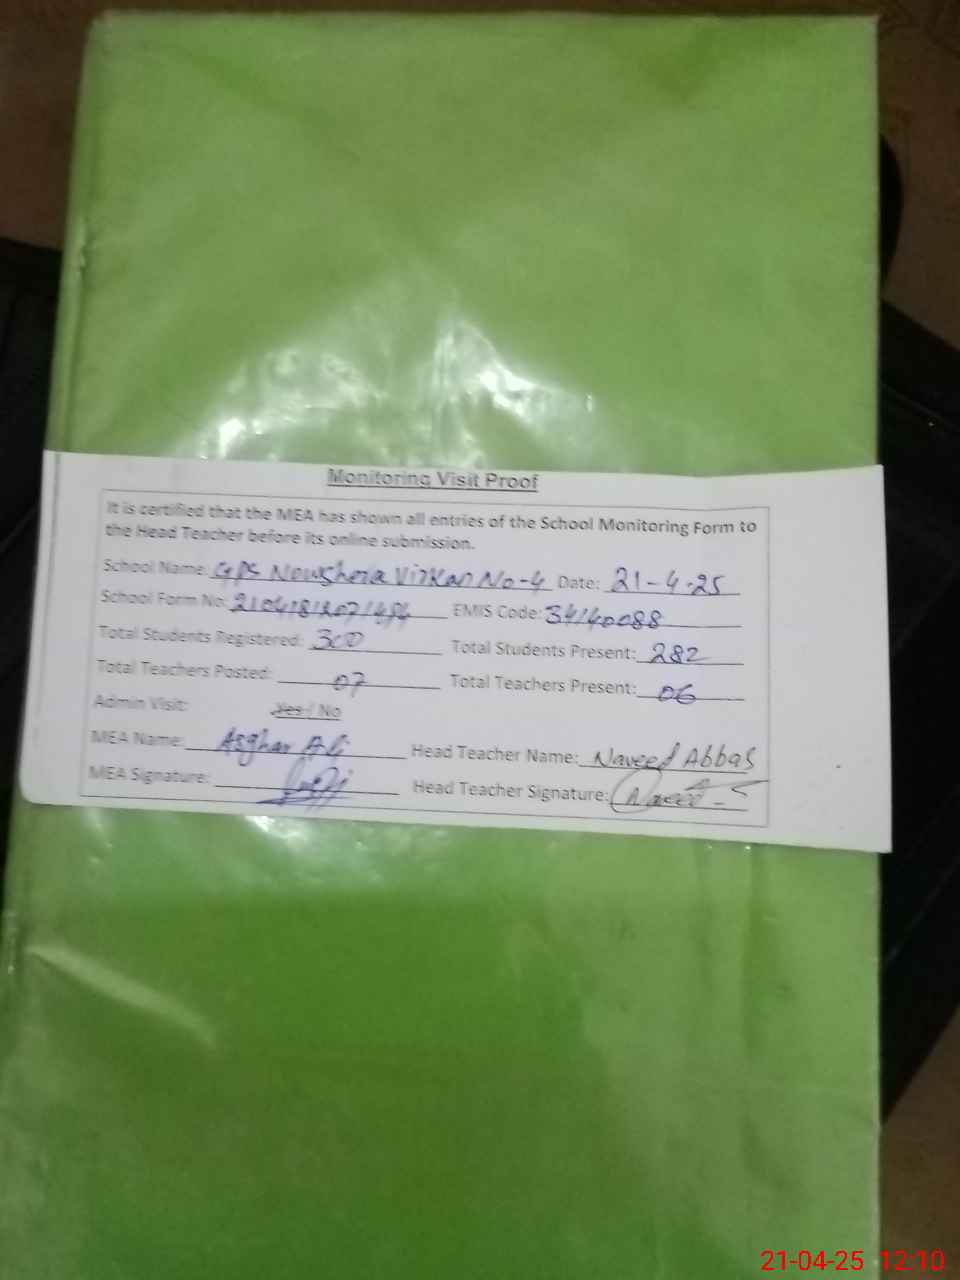 Monitoring Visit Proof
It is certified that the MEA has shown all entries of the School Monitoring Form to
the Head Teacher before its online submission.
School Name: GPS Nowshera Virkan No-4 Date: 21-4-25
School Form No: EMIS Code: 34140088
Total Students Registered: 300 Total Students Present: 282
Total Teachers Posted: 07 Total Teachers Present: 06
Admin Visit: Yes / No
MEA Name: Asghar Ali Head Teacher Name: Naveed Abbas
MEA Signature: Head Teacher Signature: Naveed
21-04-25 12:10